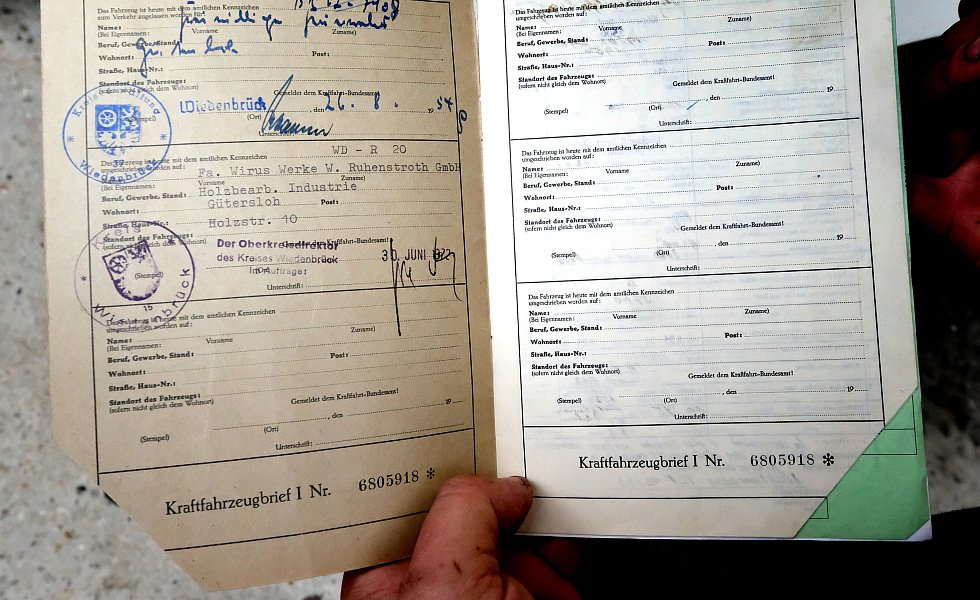 Das Fahrzeug ist heute mit dem amtlichen Kennzeichen
zum Verkehr zugelassen worden für:
Name:
(Bei Eigennamen: Vorname Zuname)
Beruf, Gewerbe, Stand:
Wohnort: Post:
Straße, Haus-Nr.:
Standort des Fahrzeugs:
(sofern nicht gleich dem Wohnort)
Gemeldet dem Kraftfahrt-Bundesamt!
Wiedenbrück, den 26. 8. 19 54
(Stempel) (Ort)
Unterschrift:
Kreis
Wiedenbrück
37
Das Fahrzeug ist heute mit dem amtlichen Kennzeichen WD - R 20
umgeschrieben worden auf:
Name: Fa. Wirus Werke W. Ruhenstroth GmbH
(Bei Eigennamen: Vorname Zuname)
Beruf, Gewerbe, Stand: Holzbearb. Industrie
Wohnort: Gütersloh Post:
Straße, Haus-Nr.: Holzstr. 10
Standort des Fahrzeugs:
(sofern nicht gleich dem Wohnort)
Gemeldet dem Kraftfahrt-Bundesamt!
Der Oberkreisdirektor
des Kreises Wiedenbrück 30. JUNI
Im Auftrage:
(Stempel) (Ort)
Unterschrift:
Kreis
Wiedenbrück
15
Das Fahrzeug ist heute mit dem amtlichen Kennzeichen
umgeschrieben worden auf:
Name:
(Bei Eigennamen: Vorname Zuname)
Beruf, Gewerbe, Stand:
Wohnort: Post:
Straße, Haus-Nr.:
Standort des Fahrzeugs:
(sofern nicht gleich dem Wohnort)
Gemeldet dem Kraftfahrt-Bundesamt!
, den 19
(Stempel) (Ort)
Unterschrift:
Kraftfahrzeugbrief I Nr. 6805918 *
Das Fahrzeug ist heute mit dem amtlichen Kennzeichen
umgeschrieben worden auf:
Name:
(Bei Eigennamen: Vorname Zuname)
Beruf, Gewerbe, Stand:
Wohnort: Post:
Straße, Haus-Nr.:
Standort des Fahrzeugs:
(sofern nicht gleich dem Wohnort)
Gemeldet dem Kraftfahrt-Bundesamt!
, den 19
(Stempel) (Ort)
Unterschrift:
Das Fahrzeug ist heute mit dem amtlichen Kennzeichen
umgeschrieben worden auf:
Name:
(Bei Eigennamen: Vorname Zuname)
Beruf, Gewerbe, Stand:
Wohnort: Post:
Straße, Haus-Nr.:
Standort des Fahrzeugs:
(sofern nicht gleich dem Wohnort)
Gemeldet dem Kraftfahrt-Bundesamt!
, den 19
(Stempel) (Ort)
Unterschrift:
Das Fahrzeug ist heute mit dem amtlichen Kennzeichen
umgeschrieben worden auf:
Name:
(Bei Eigennamen: Vorname Zuname)
Beruf, Gewerbe, Stand:
Wohnort: Post:
Straße, Haus-Nr.:
Standort des Fahrzeugs:
(sofern nicht gleich dem Wohnort)
Gemeldet dem Kraftfahrt-Bundesamt!
, den 19
(Stempel) (Ort)
Unterschrift:
Kraftfahrzeugbrief I Nr. 6805918 *